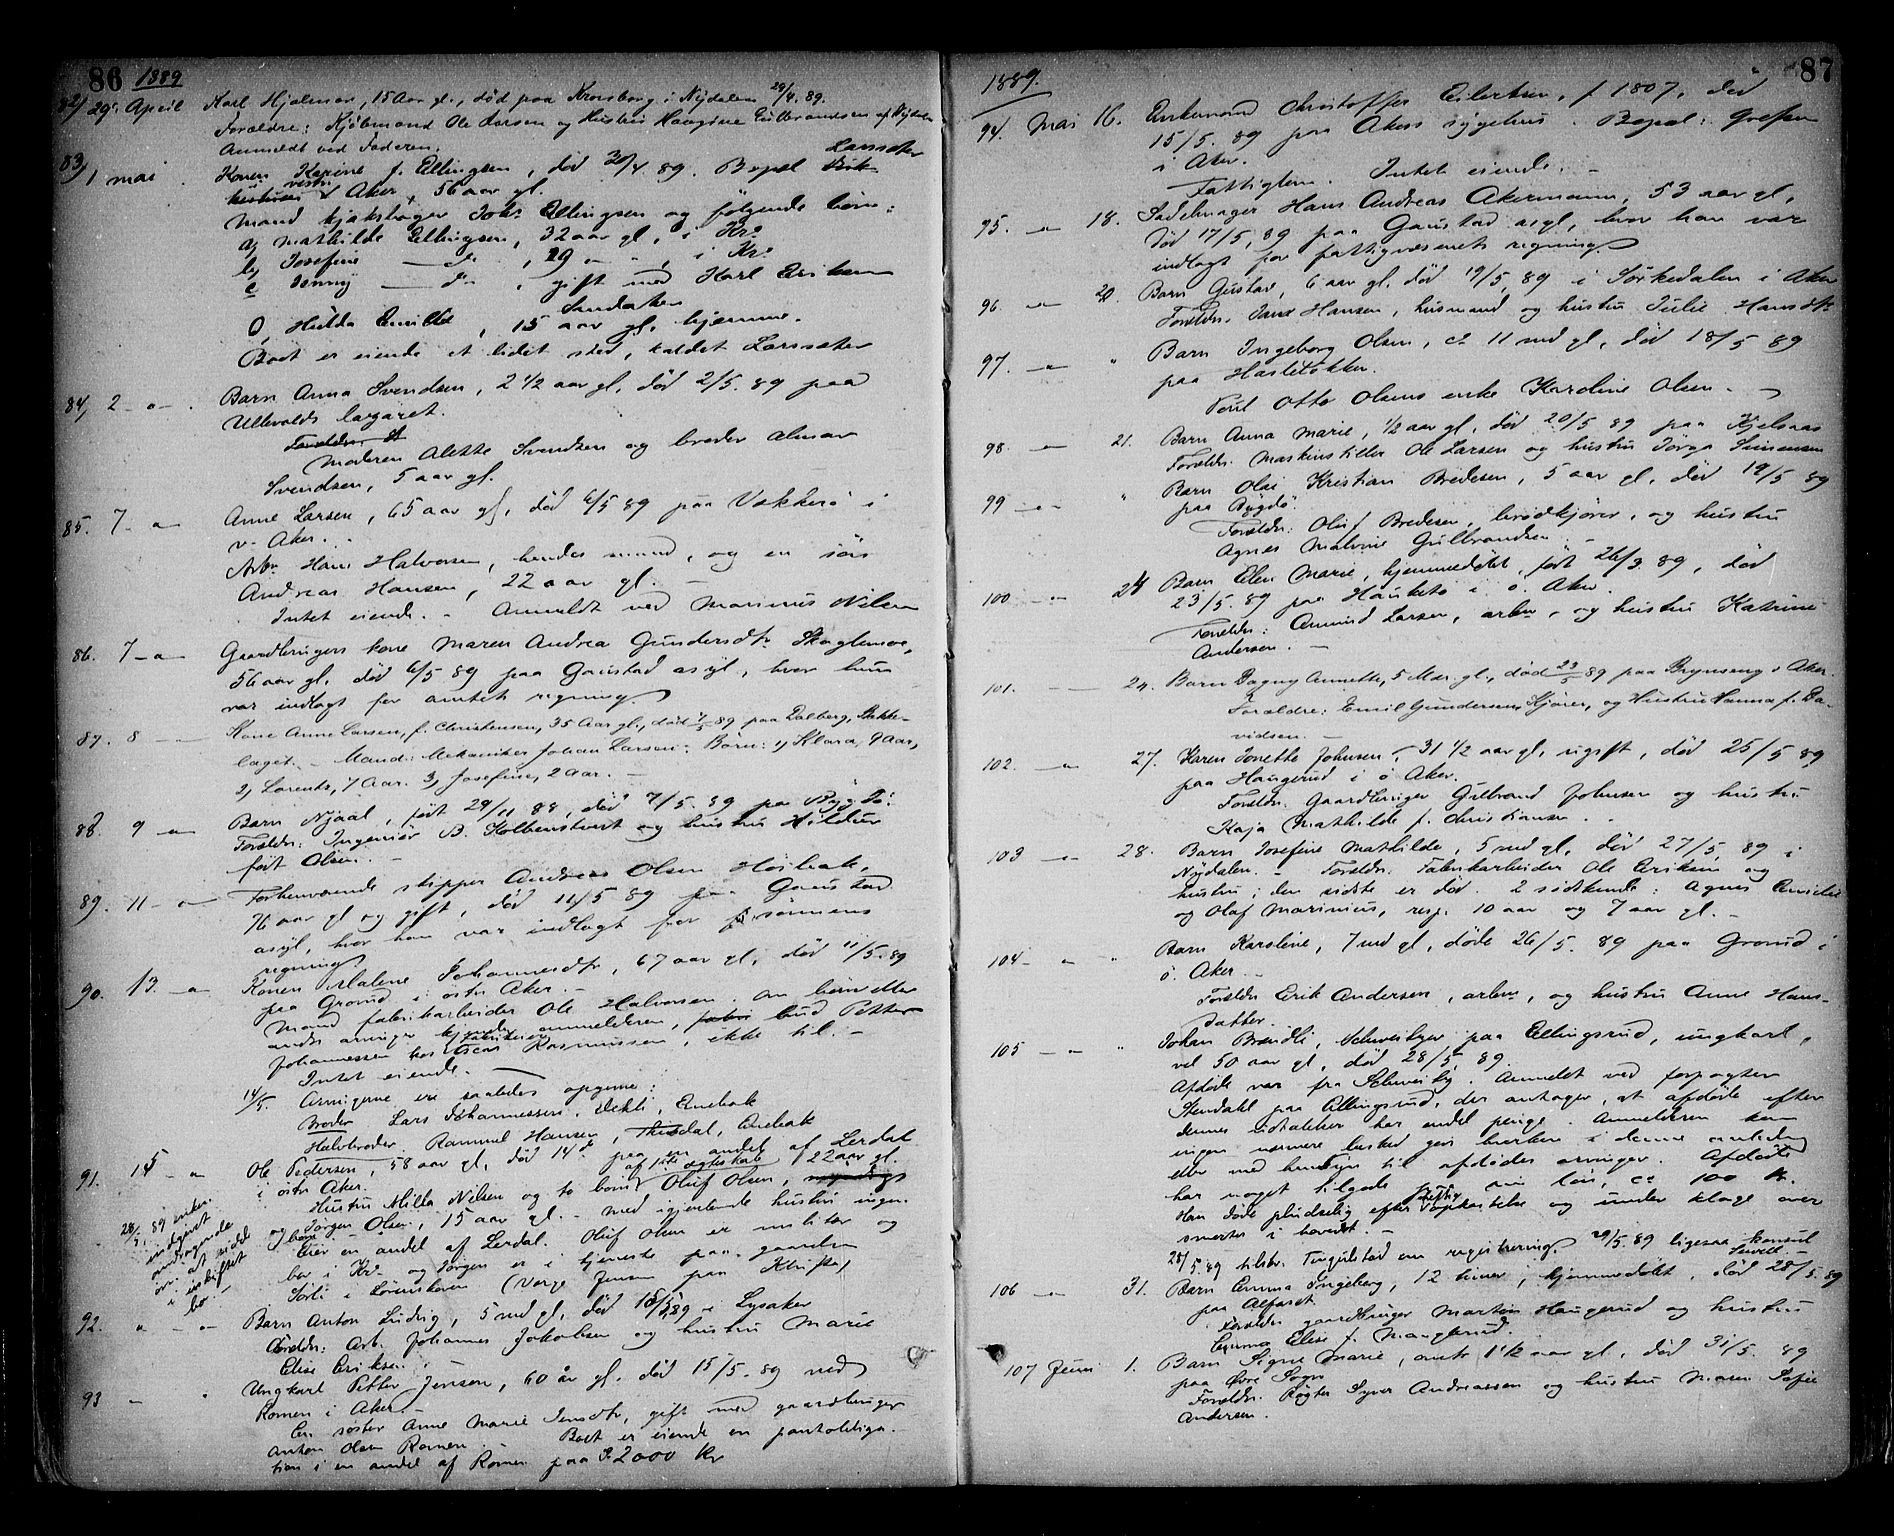 86 1889
82, 29. April Karl Hjalmar, 15 Aar gl., død paa Kronborg i Nydalen 29/4. 89.
Forældre: Kjøbmand Ole Larsen og Hustru Haagine Gulbrandsen af Nydalen
Anmeldt ved Faderen.
83, 1 mai Konen Karine f. Ellingsen, død 30/4 89. Bopæl Larsseter
vestre Aker, 56 aar gl.
Mand kjaksbager Johs Ellingsen og følgende børn:
a, Mathilde Ellingsen, 32 aar gl, i Kra
b, Josefine — do , 29 — " — , i Kra
c Jenny — do , gift med Karl Eriksen
Sandaker
D, Hulda Emilie , 15 aar gl, hjemme.
Boet er eiende et lidet sted, kaldet Larsseter
84, 2 — " — . Barn Anna Svendsen, 2 1/2 aar gl, død 2/5. 89 paa
Ullevolds lazaret.
Moderen Alette Svendsen og broder Almar
Svendsen, 5 aar gl.
85. 7 — " — Anne Larsen, 65 aar gl, død 6/5 89 paa Vækkerø i
v. Aker.
Arbr Hans Halvorsen, hendes mand, og en søn
Andreas Hansen, 22 aar gl. —
Intet eiende. — Anmeldt ved Marinius Nilsen
86. 7 — " — Gaardbrugers kone Maren Andrea Gundersdtr Skoglunsoe,
56 aar gl, død 6/5 89 paa Gaustad asyl, hvor hun
var indlagt for amtets regning
87. 8 — Kone Anne Larsen, f. Christensen, 35 Aar gl., død 7/5 89 paa Dalberg, Bække-
laget. — Mand: Mekaniker Johan Larsen. Børn: 1, Klara, 9 Aar,
2, Lorentz, 7 Aar. 3, Josefine, 2 Aar. —
88. 9 — " — Barn Njaal, født 29/11 88, død 7/5. 89 pa Bygdø.
Forældr: Ingeniør B. Kolbenstvedt og hustru Hildur
født Olsen. —
89. 11 — " — Forhenværende skipper Andreas Olsen Høibak,
76 aar gl og gift, død 11/5 89 paa Gaustad
asyl, hvor han var indlagt for sønnens
regning
90. 13. — " Konen Malene Johannesdtr, 67 aar gl, død 11/5. 89
paa Grorud i østr Aker. —
Mand fabrikarbeider Ole Halvorsen. Om børn eller
andre arvinger kjender anmelderen, bud Petter
Johannessen hos fabrikeier Oscar Rasmussen, ikke til. —
Intet eiende. —
14/5. Arvingerne er saaledes opgivne:
Broder Lars Johannessen, Enebak
Halvbroder Rammel Hansen, Thisdal, Enebak
91. 15 — " Ole Pedersen, 58 aar gl, død 14de paa en andel af Lerdal
i østre Aker. af 1ste ægteskab
Hustru Milla Nilsen og to børn Oluf Olsen, 22 aar gl.
og Jørgen Olsen, 15 aar gl. — med igjenlevende hustru ingen
børn —
Eier en andel af Lerdal. Oluf Olsen er militær og
bor i Kra og Jørgen er i tjeneste paa gaarden
Sørli i Lørenskoven (Værge Jensen paa Kliffta)
28/5 89 enken
indgivet
andragende
om at sidde
i uskiftet
bo.
92. " — " — Barn Anton Ludvig, 5 md gl, død 15/5 89 i Lysaker
Forældr: Arb. Johannes Jakobsen og hustru Marie
Elise Eriksen.
93 — " Ungkarl Petter Jensen, 60 år gl. død 15/5. 89 ved
Romen i Aker —
En søster Anne Marie Jensdtr, gift med gaardbruger
Anton Olsen Romen. — Boet er eiende en pantobliga-
tion i en andel af Romen paa 2000 kr
1889. 87
94. Mai 16. Enkemand Christoffer Eilertsen, f 1807, død
15/5. 89 paa Akers sygehus. Bopæl: Grefsen
i Aker.
Fattiglem. Intet eiende. —
95. — " 18. Sadelmager Hans Andreas Akermann, 53 aar gl,
død 17/5, 89 paa Gaustad asyl, hvor han var
indlagt for fattigvæsenets regning
96 — " 20. Barn Gustav, 6 aar gl. død 19/5 89 i Sørkedalen i Aker
Forældr. Jens Hansen, husmand og hustru Julie Hansdtr
97. — " " Barn Ingeborg Olsen, ca 11 md gl, død 18/5 89
paa Hasleløkken.
Otto Olsens enke Karoline Olsen. —
98 — " 21. Barn Anna Marie, 1/2 aar gl, død 20/5 89 paa Kjelsaas
Forældr. Maskinstiller Ole Larsen og hustru Jørga Simensen
99 — " — " Barn Olai Kristian Bredesen, 5 aar gl, død 19/5 89
paa Bygdø.
Forældr: Oluf Bredesen, brødkjører, og hustru
Agnes Malvine Gulbrandsen. —
100 — " 24 Barn Elen Marie, hjemmedøbt, født 26/3. 89, død
23/5. 89 paa Hauketo i ø. Aker.
Forældr: Amund Larsen, arbr, og hustru Katrine
Andersen. —
101. — 24. Barn Dagny Annette, 5 Mdr. gl., død 23/5 89 paa Brynseng i Aker.
Forældre: Emil Gundersen, Kjører, og Hustru Hanna f. Da-
vidsen. —
102. — " 27. Karen Jonette Johnsen, 31 1/2 aar gl, ugift, død 25/5 89
paa Haugerud i ø Aker.
Forældr. Gaardbruger Gulbrand Johnsen og hustru
Kaja Mathilde f. Christiansen.
103 — " 28. Barn Josefine Mathilde, 5 md gl, død 27/5 89 i
Nydalen. — Forældr. Fabrikarbeider Ole Eriksen og
hustru; den sidste er død. 2 sødskende: Agnes Emilie
og Olaf Marinius, resp. 10 aar og 7 aar gl. —
104 — " " Barn Karoline, 7 md gl, døde 26/5. 89 paa Grorud i
ø. Aker —
Forældr Erik Andersen, arbr, og hustru Anne Hans-
datter.
105 — " " Johan Brændli, Schweitzer paa Ellingsrud, ungkarl,
vel 50 aar gl, død 28/5 89.
Afdøde var fra Schweitz. Anmeldt ved forpagter
Stendahl paa Ellingsrud, der antager, at afdøde efter
dennes udtalelser har endel penge. Anmelderen kan
ingen nærmere besked give hverken i denne anledning
eller med hensyn til afdødes arvinger. Afdøde
har noget tilgode i sin løn, ca 100 kr.
Han døde pludselig efter heftig opkastelse og under klage over
smerter i hovedet. —
28/5 89 tilskr. Tingulstad om registrering. 29/5 89 ligesaa konsul
106 — " 31. Barn Emma Ingeborg, 12 timer, hjemmedøbt, død 28/5. 89
paa Alfaset.
Forældr gaardbruger Martin Haugerud og hustru
Emma Elise f. Manglerud.
107 Juni 1. Barn Signe Marie, omtr 1 1/2 aar gl, død 31/5. 89
paa Øvre Sogn
Forældr. Røgter Syver Andreassen og hustru Maren Sofie
Andersen.